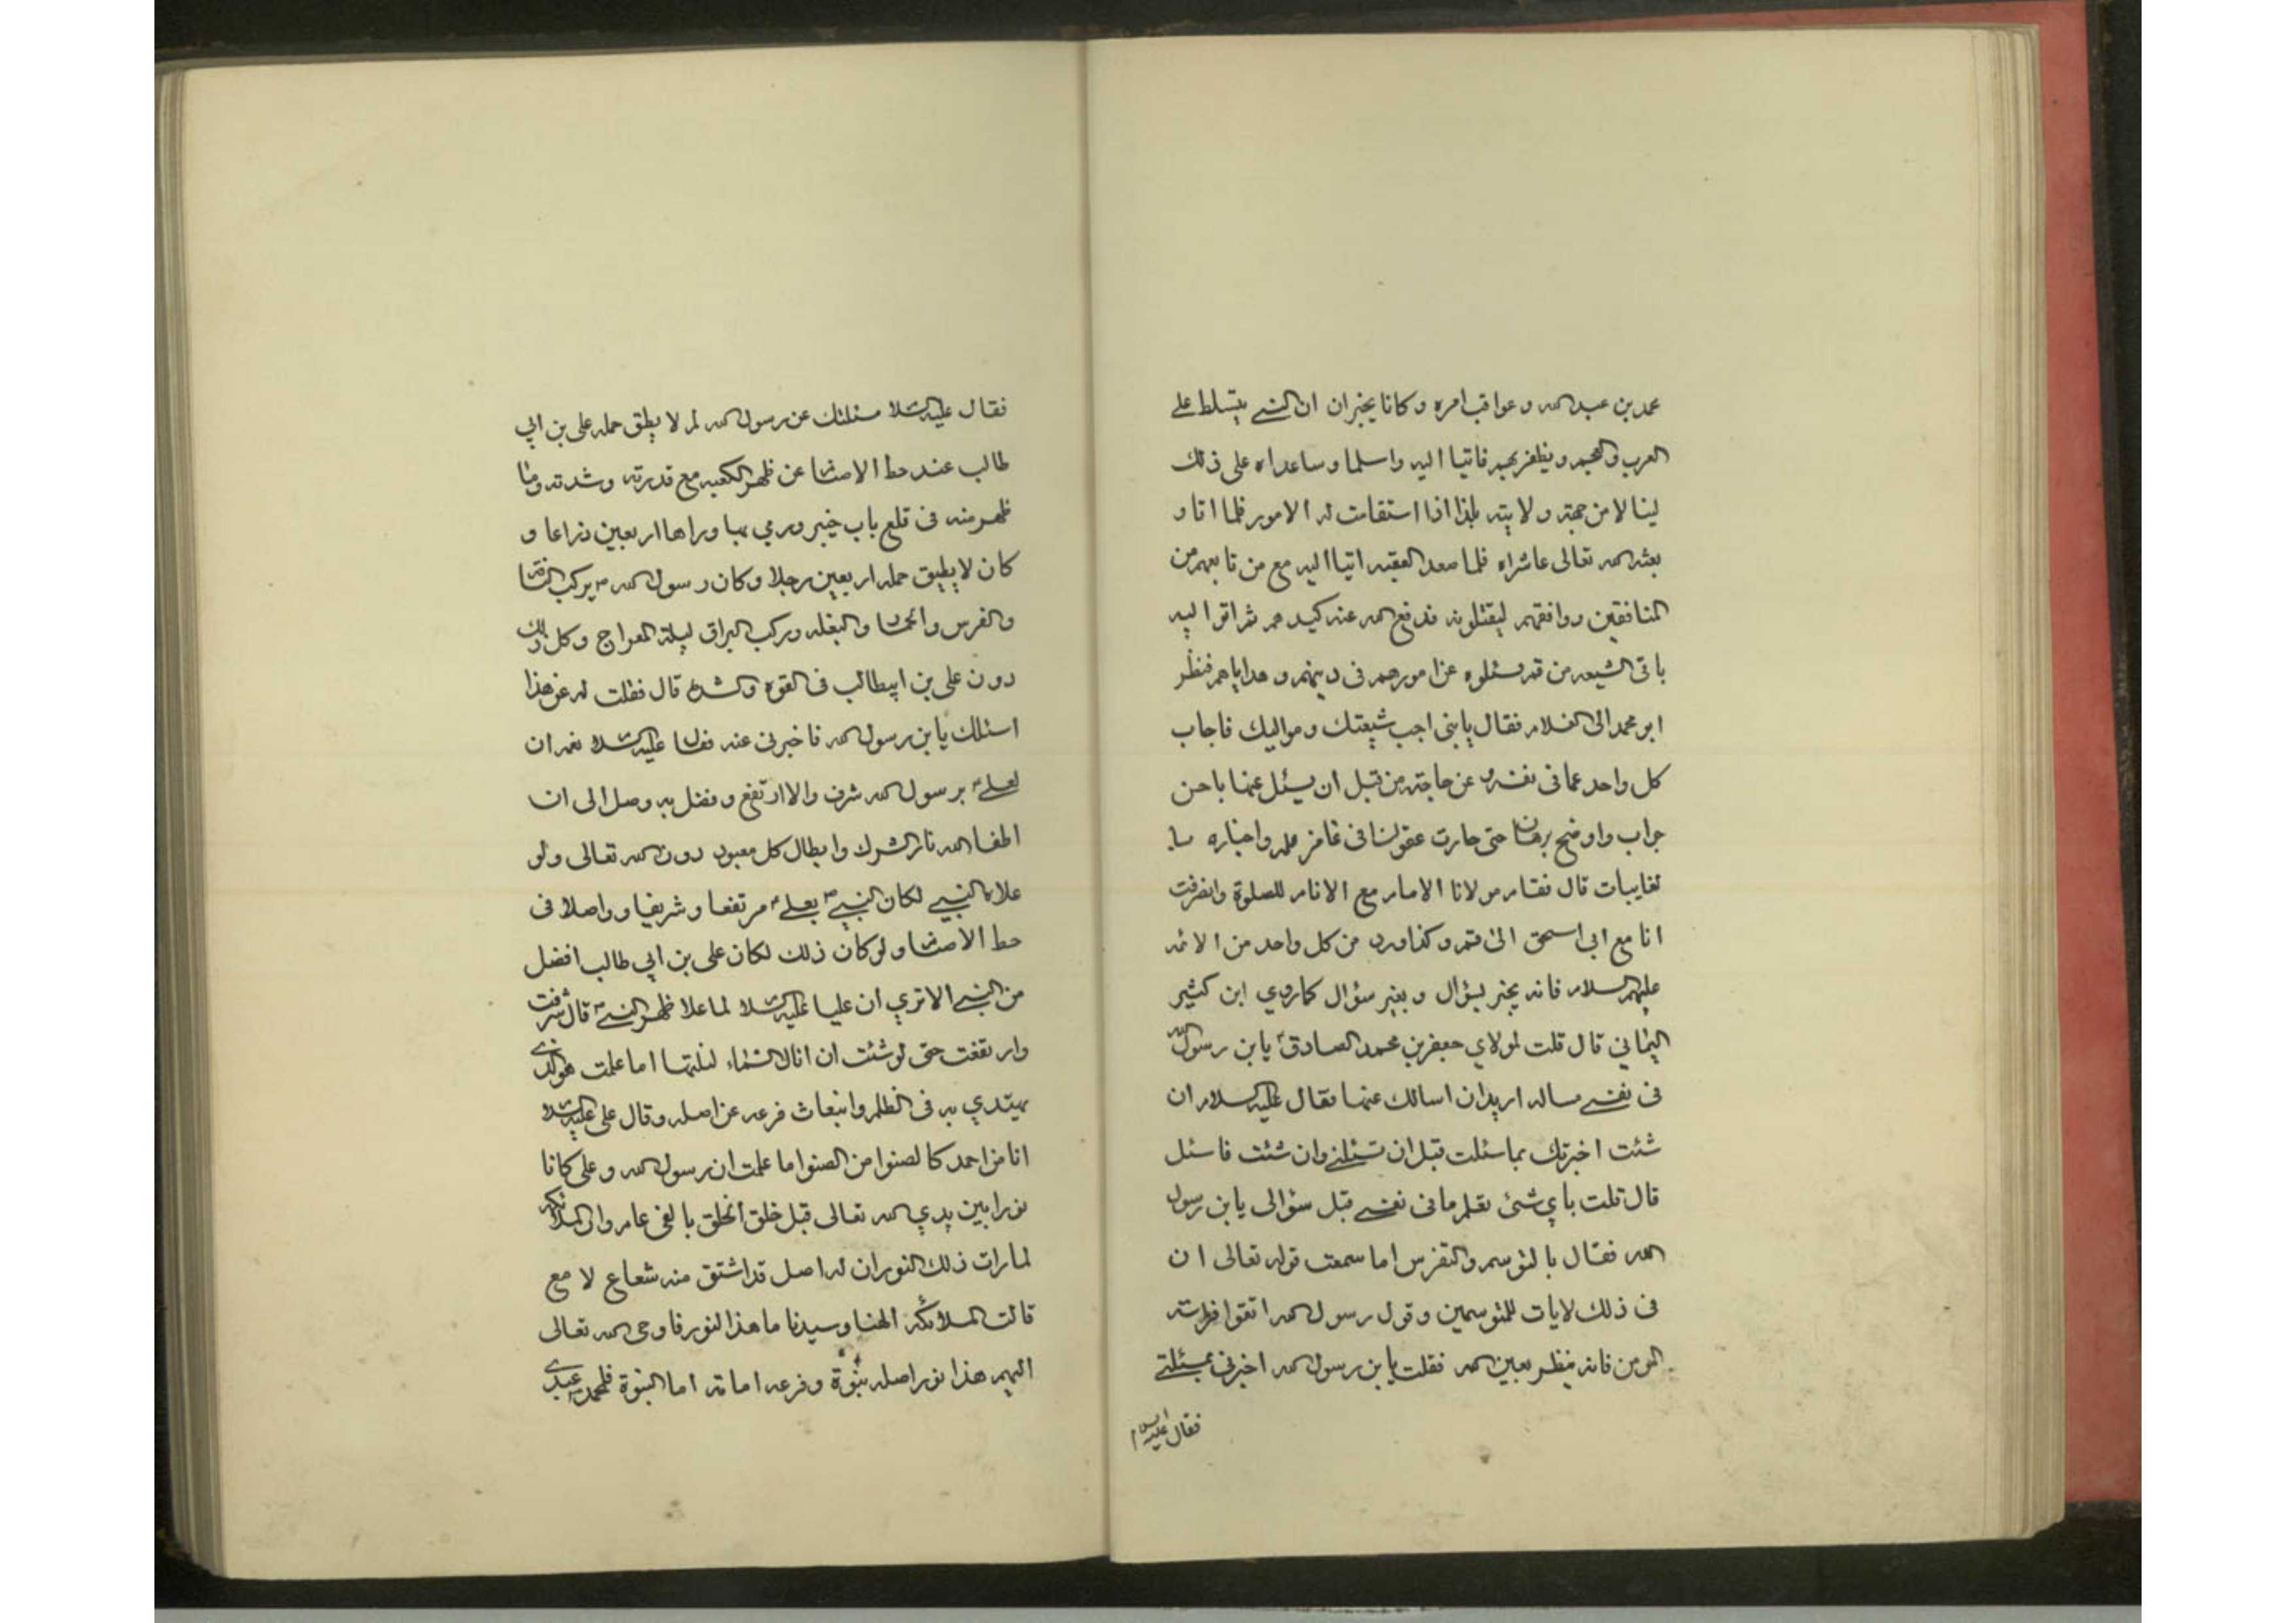 محمد بن عبد الله و عواقب امره و كانا يخبران ان النبي يتسلط على
العرب والعجم و يظفر بهم فاتيا اليه واسلما و ساعداه على ذلك
لينالا من جهته ولايته بلدا اذا استقامت له الامور فلما اتا و
بعثه الله تعالى عاشراه فلما صعد العقبه اتيا اليه مع من تابعهم من
المنافقين ووافقهم ليقتلونه فدفع الله عنه كيدهم ثم اتوا اليه
باقى الشيعه من قم يسئلوه عن امورهم فى دينهم و هداياهم فنظر
ابو محمد الى الغلام فقال يابنى اجب شيعتك ومواليك فاجاب
كل واحد عما فى نفسه و عن حاجته من قبل ان يسئل عنها باحسن
جواب واوضح برهان حتى حارت عقولنا فى غامز علمه واخباره با
لغايبات قال فقام مولانا الامام مع الانام للصلوة وانصرفت
انا مع ابى اسحق الى قم و كذا ورد من كل واحد من الائمه
عليهم السلام فانه يخبر بسؤال و بغير سؤال كما روي ابن كثير
اليماني قال قلت لمولاي جعفر بن محمد الصادقؑ يابن رسول الله
فى نفسى مساله اريد ان اسالك عنها فقال عليه السلام ان
شئت اخبرتك بما سئلت قبل ان تسئلنى وان شئت فاسئل
قال قلت باي شئ تعلم ما فى نفسى قبل سؤالى يابن رسول
الله فقال بالتوسم والتفرس اما سمعت قوله تعالى ان
فى ذلك لايات للمتوسمين وقول رسول الله اتقوا فراسته
المومن فانه ينظر بعين الله فقلت يابن رسول الله اخبرنى بمسئلتى
فقال عليه السلام
فقال عليه السلام مسئلتك عن رسول الله لم لا يطق حمله على بن ابي
طالب عند حط الاصنام عن ظهر الكعبه مع قدرته وشدته وما
ظهر منه فى قلع باب خيبر ورمي بها وراها اربعين ذراعا و
كان لا يطيق حمله اربعين رجلا وكان رسول الله ص يركب الناقة
والفرس والحمار والبغله وركب البراق ليلة المعراج وكل ذلك
دون على بن ابيطالب فى القوه والشده قال فقلت له عن هذا
اسئلك يابن رسول الله فاخبرنى عنه فقال عليه السلام نعم ان
لعليؑ برسول الله شرف والا ارتفع وفضل به وصل الى ان
اطفا الله نار الشرك وابطال كل معبود دون الله تعالى ولو
علاه النبي لكان النبيؐ بعليؑ مرتفعا وشريفا وواصلا فى
حط الاصنام ولو كان ذلك لكان على بن ابي طالب افضل
من النبى الا تري ان عليا عليه السلام لما علا ظهر النبىؐ قال شرفت
وارتفعت حتى لو شئت ان انال السماء لنلتها اما علمت هو الذى
يهتدي به فى الظلم وانبعاث فرعه عن اصله وقال على عليه السلام
انا من احمد كالصنوا من الصنوا ما علمت ان رسول الله وعلى كانا
نورا بين يدي الله تعالى قبل خلق الخلق بالفى عام وان الملائكه
لما رات ذلك النور ان له اصل قد اشتق منه شعاع لامع
قالت الملائكه الهنا وسيدنا ما هذا النور فاوحى الله تعالى
اليهم هذا نور اصله نبوة وفرعه امامة اما النبوة فلمحمد عبدى